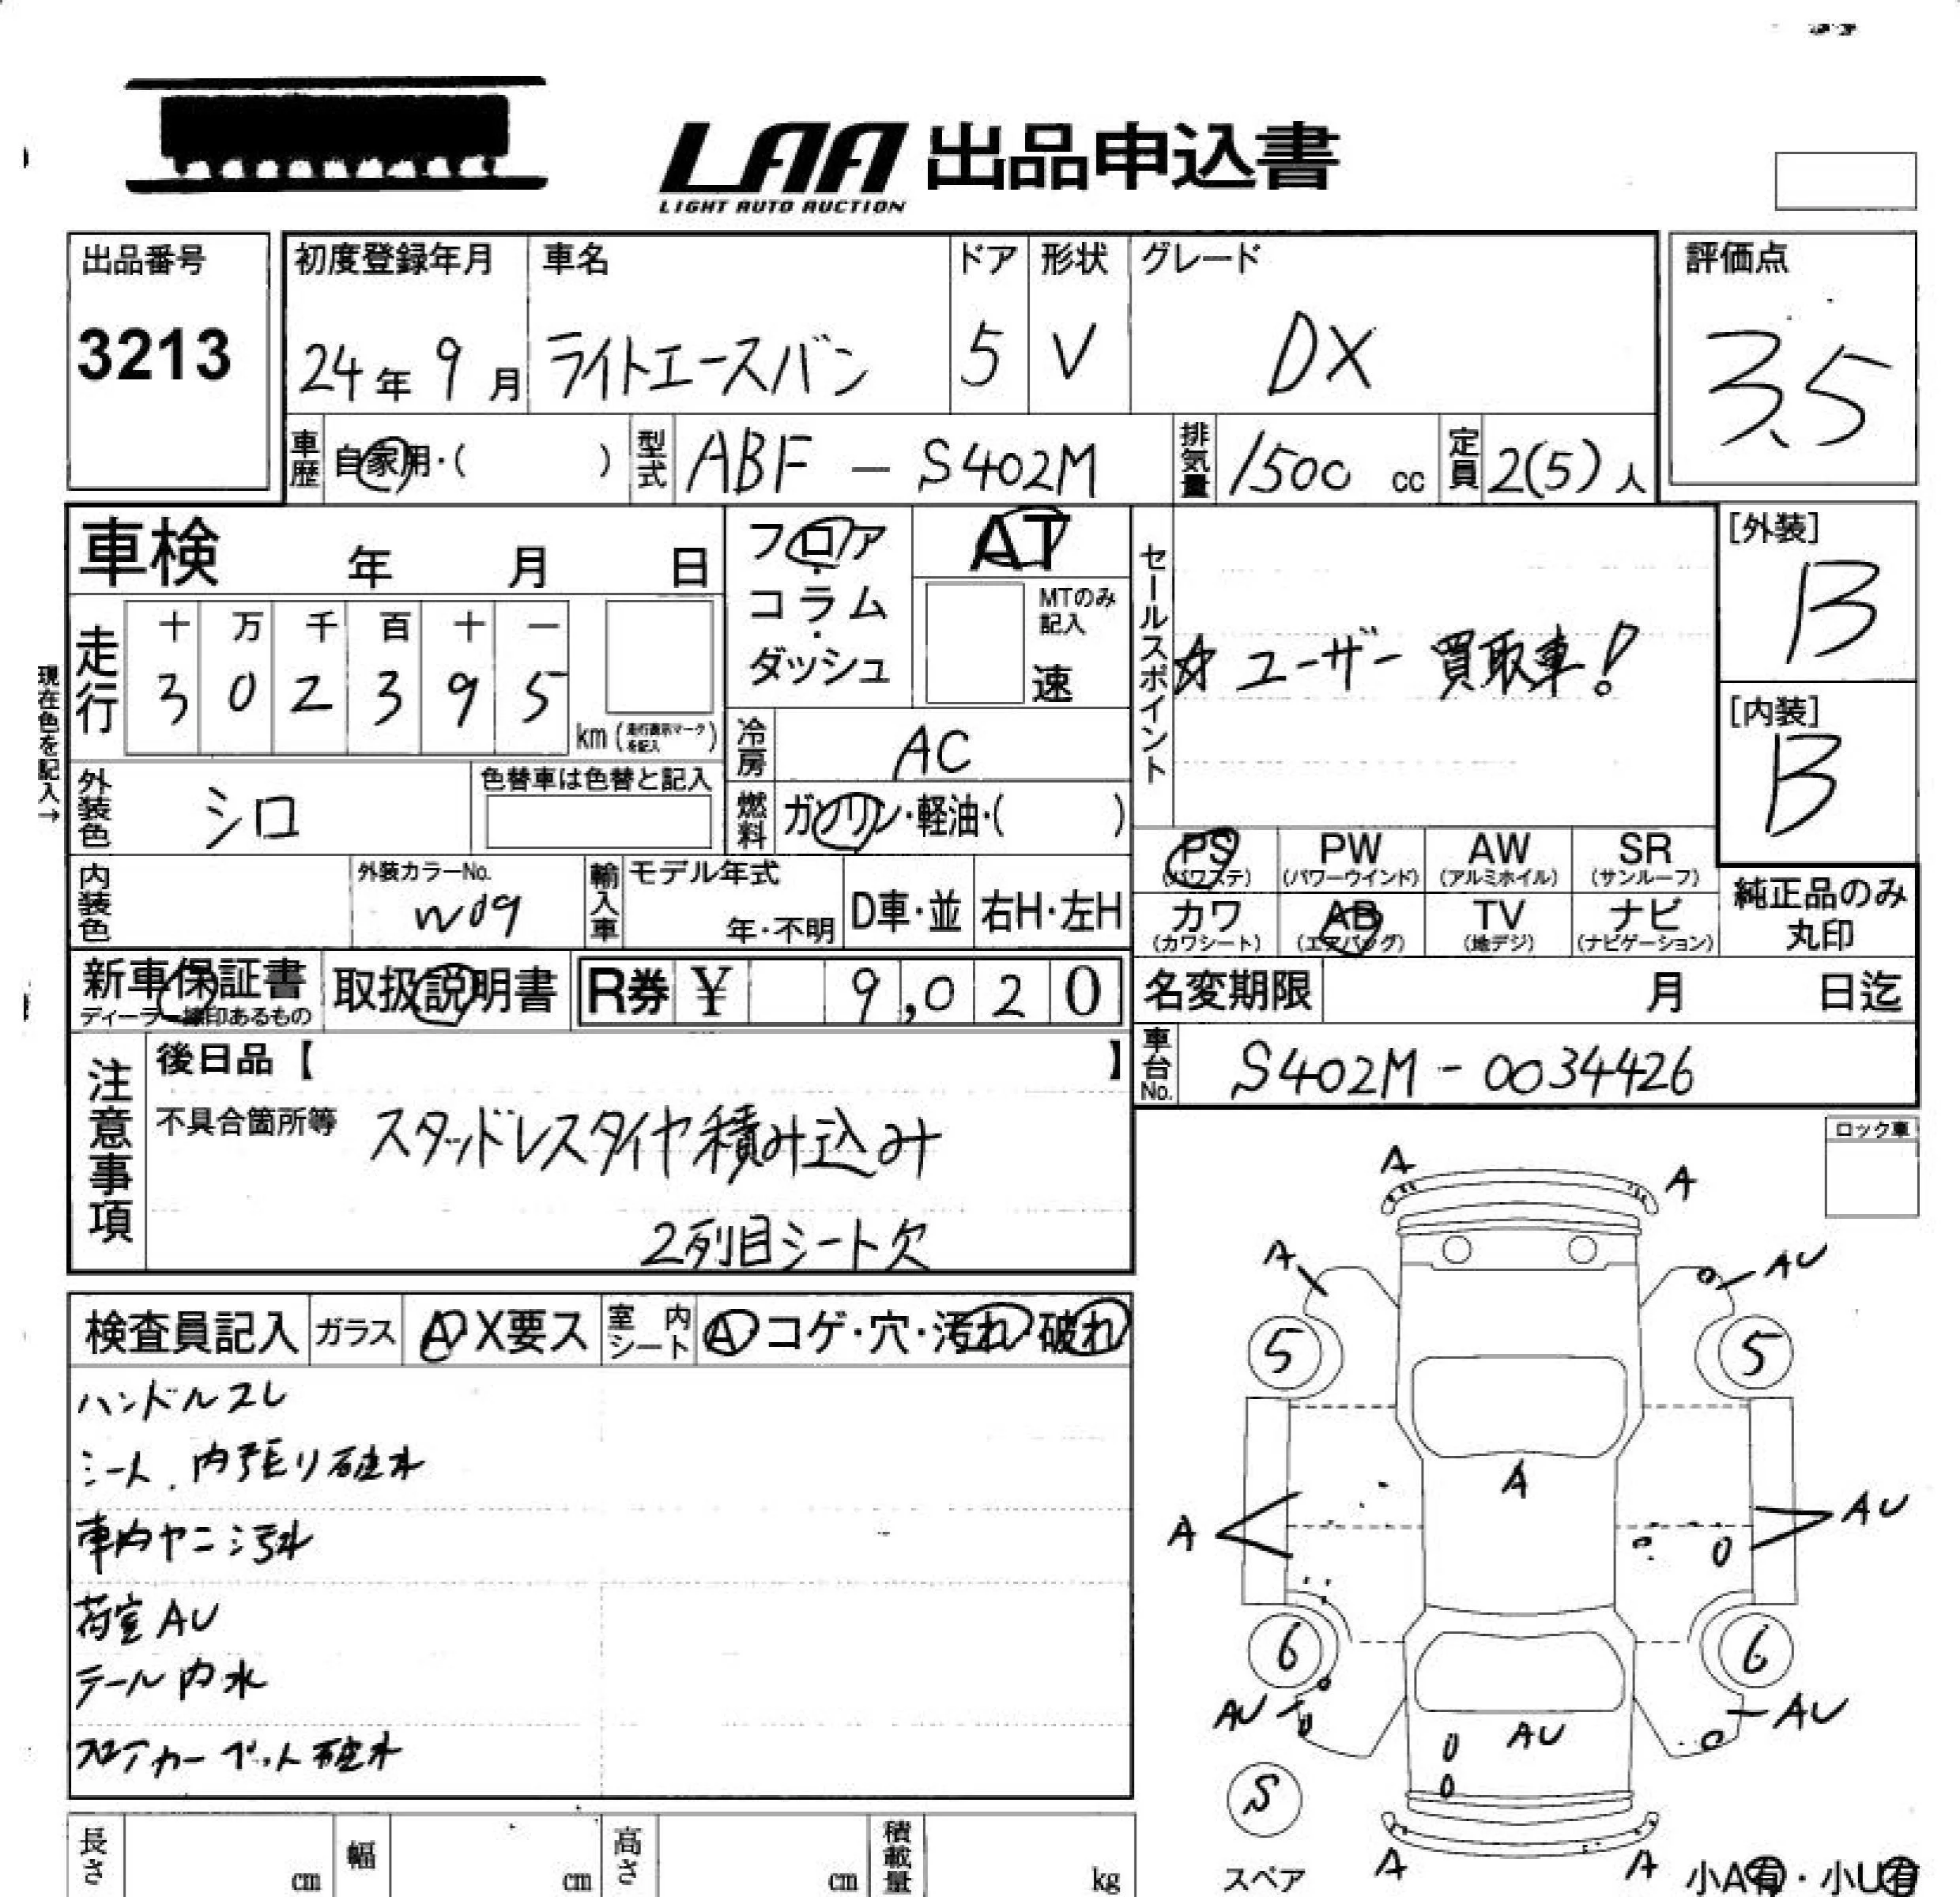 LAA 出品申込書
LIGHT AUTO AUCTION
出品番号
3213
初度登録年月 車名 ドア 形状 グレード
24年 9月 ライトエースバン 5 V DX
評価点
3.5
車歴 自家用・( ) 型式 ABF - S402M 排気量 1500 cc 定員 2(5)人
車検 年 月 日
フロア・コラム・ダッシュ
AT
MTのみ記入
速
セールスポイント
☆ユーザー買取車!
[外装]
B
[内装]
B
現在色を記入→
走行 十 万 千 百 十 一
3 0 2 3 9 5
km (走行表示マークを記入)
冷房 AC
外装色 シロ 色替車は色替と記入
燃料 ガソリン・軽油・( )
PS (パワステ) PW (パワーウインド) AW (アルミホイル) SR (サンルーフ)
カワ (カワシート) AB (エアバッグ) TV (地デジ) ナビ (ナビゲーション)
純正品のみ
丸印
内装色 外装カラーNo. W09 輸入車 モデル年式 年・不明 D車・並 右H・左H
新車保証書 ディーラー捺印あるもの 取扱説明書 R券 ¥ 9,020
名変期限 月 日迄
車台No. S402M - 0034426
注意事項 後日品【 】
不具合箇所等 スタッドレスタイヤ積み込み
2列目シート欠
ロック車
検査員記入 ガラス A X要ス 室内シート A コゲ・穴・汚れ・破れ
ハンドルスレ
シート、内張り破れ
車内ヤニ汚れ
荷室AU
テール内水
フロアカーペット破れ
A A
A AU
5 5
A
A AU
U
6 6
AU AU AU
U
U
S
スペア
A A
小A有・小U有
長さ cm 幅 cm 高さ cm 積載量 kg